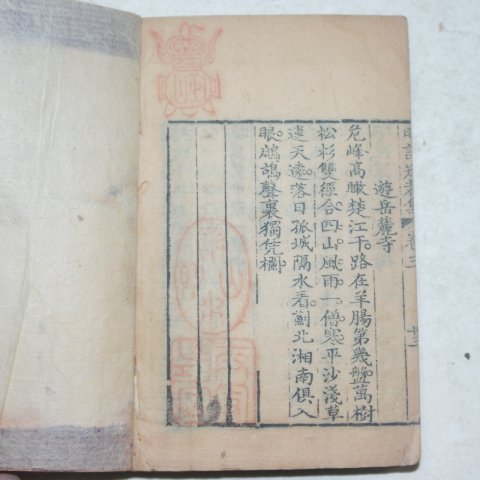 明詩別裁集 卷三
遊岳麓寺
危峰高瞰楚江干路在羊腸第幾盤萬樹
松杉雙徑合四山風雨一僧寒平沙淺草
連天遠落日孤城隔水看薊北湘南俱入
眼鷓鴣聲裏獨凭欄